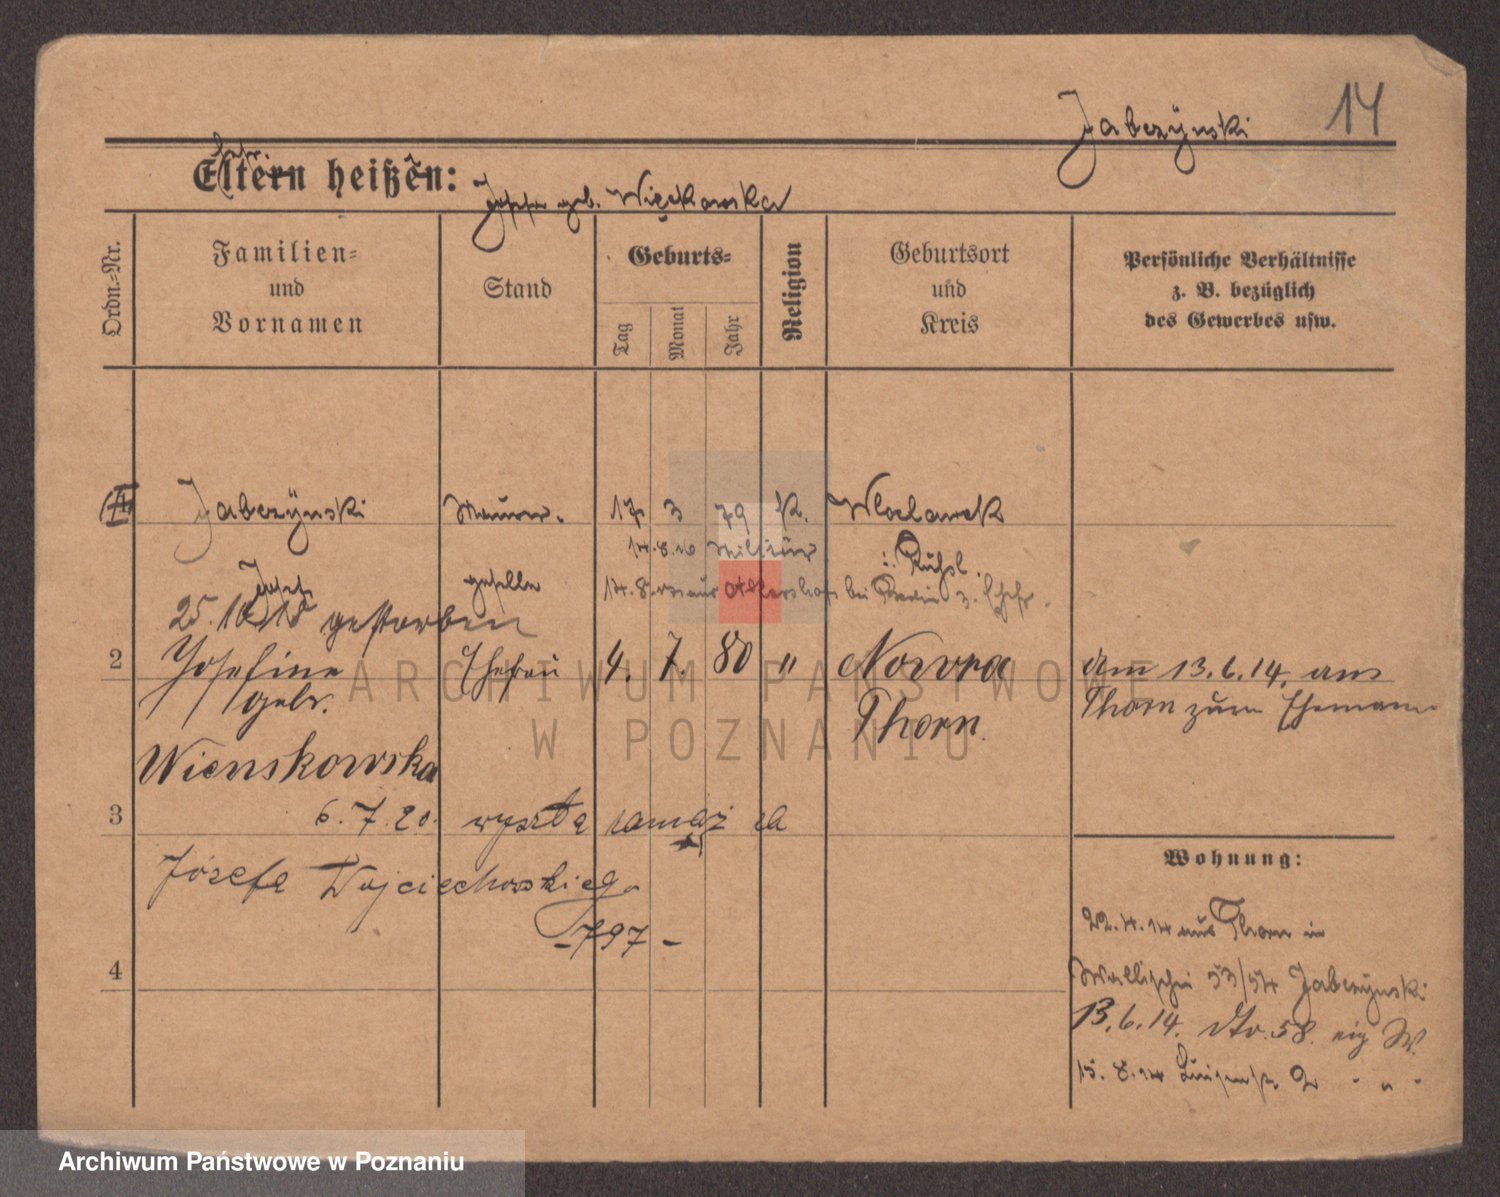 Jabczÿnski 14
Eltern heißen:
Josefa geb. Więckowska
Ordn.-Nr.
Familien-
und
Vornamen
Stand
Geburts-
Tag
Monat
Jahr
Religion
Geburtsort
und
Kreis
Persönliche Verhältnisse
z. B. bezüglich
des Gewerbes usw.
1 Jabczÿnski Maurer- 17 3 79 K. Wloclawek
14.8.16 Militär
i. Rußl.
Josef geselle
bei Berlin z. Ehefr.
25.10.18 gestorben
2 Josefine Ehefrau 4. 7. 80 " Nowra am 13.6.14. aus
geb. Thorn. Thorn zum Ehemann
Wienskowska
3 6.7.20. wyszła zamąż za
Józefa Wojciechowskiego
-797-
4
Wohnung:
22.4.14 aus Thorn in
Wallischei 53/54 Jabczÿnski
13.6.14. dto. 58. eig W.
15.8.14
ARCHIWUM PAŃSTWOWE
W POZNANIU
Archiwum Państwowe w Poznaniu